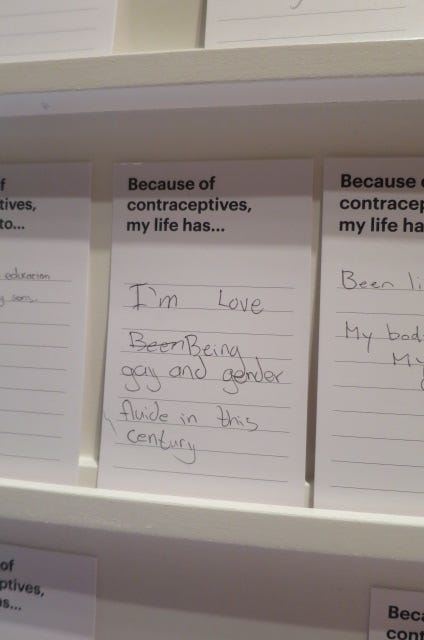 f
tives,
to...
education
sons.
Because of
contraceptives,
my life has...
I'm Love
Been Being
gay and gender
fluide in this
century
Because
contracep
my life ha
Been li
My bod
My
of
ptives,
s...
Beca
cont